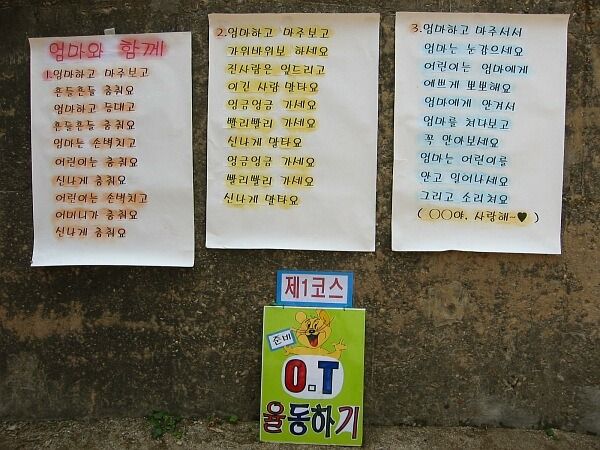 엄마와 함께
1. 엄마하고 마주보고
흔들흔들 춤춰요
엄마하고 등대고
흔들흔들 춤춰요
엄마는 손벽치고
어린이는 춤춰요
신나게 춤춰요
어린이는 손벽치고
어머니가 춤춰요
신나게 춤춰요
2. 엄마하고 마주보고
가위바위보 하세요
진사람은 엎드리고
이긴 사람 말타요
엉금엉금 가세요
빨리빨리 가세요
신나게 말타요
엉금엉금 가세요
빨리빨리 가세요
신나게 말타요
3. 엄마하고 마주서서
엄마는 눈감으세요
어린이는 엄마에게
예쁘게 뽀뽀해요
엄마에게 안겨서
엄마를 쳐다보고
꼭 안아보세요
엄마는 어린이를
안고 일어나세요
그리고 소리쳐요
( ○○야, 사랑해~♥ )
제1코스
준비
O.T
율동하기